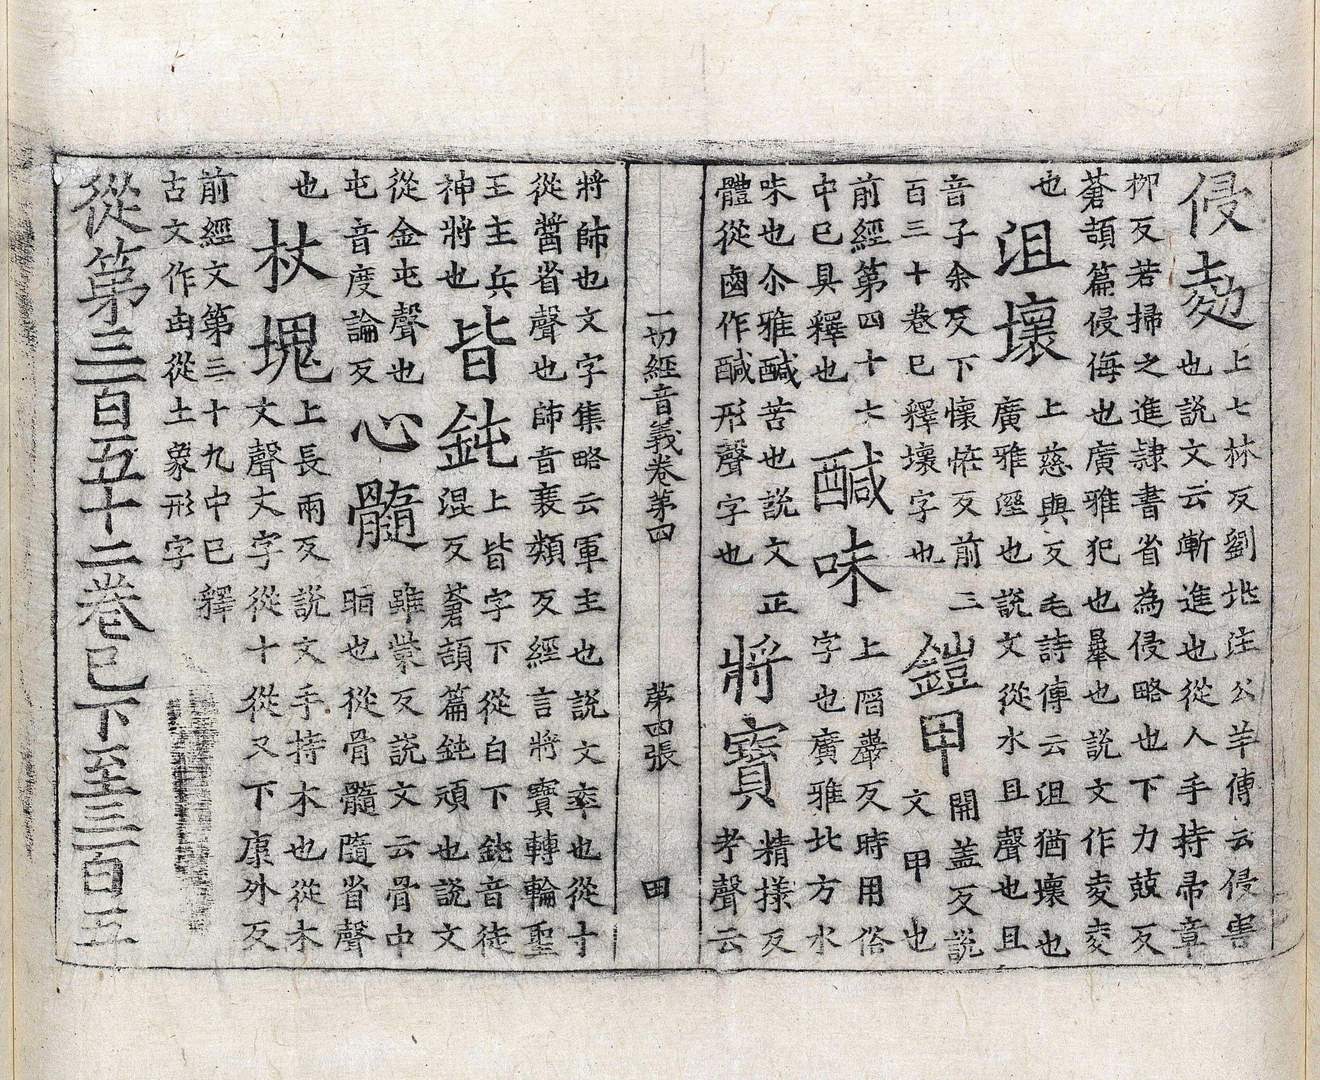 侵
上七林反劉兆注公羊傳云侵害
也說文云漸進也從人手持帚章
柳反若掃之進隷書省為侵略也下力兢反
蒼頡篇侵侮也廣雅犯也㬥也說文作夌夌
也
沮壞
上慈與反毛詩傳云沮猶壞也
廣雅溼也說文從水且聲也且
音子余反下懷恠反前二
百三十卷已釋壞字也
鎧甲
開盖反說
文甲也
前經第四十六
中已具釋也
鹹味
上反時用俗
字也廣雅北方水
味也尒雅鹹苦也說文正
體從鹵作鹹形聲字也
將寳
精樣反
考聲云
一切經音義卷第四 第四張 田
將帥也文字集略云軍主也說文率也從寸
從醬省聲也帥音衰類反經言將寳轉輪聖
王主兵
神將也
皆鈍
上皆字下從白下鈍音徒
混反蒼頡篇鈍頑也說文
從金屯聲也
屯音度論反
心髓
雖紫反說文云骨中
脂也從骨髓隨省聲
也
杖塊
上長兩反說文手持木也從木
丈聲丈字從十從又下康外反
前經文第三十九中已釋
古文作凷從土象形字
從第三百五十二卷已下至三百五